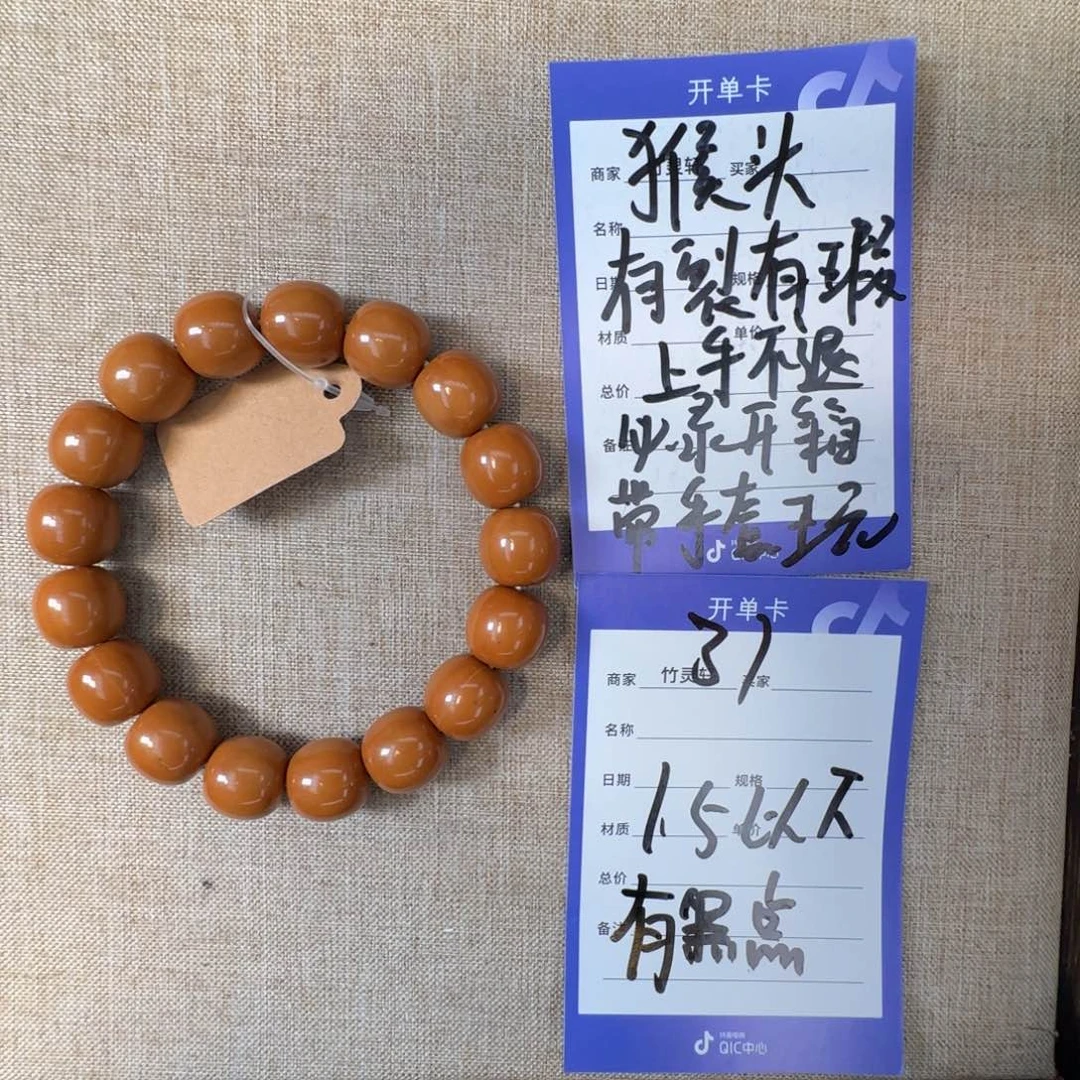 开单卡
猴头
商家 买家
名称
有裂有瑕
日期 规格
材质 单价
上手不退
总价
必录开箱
备注
带手套玩
开单卡
31
商家 竹灵轩 买家
名称
日期 规格
1.5以下
材质 单价
总价
有黑点
备注
抖音电商
QIC中心